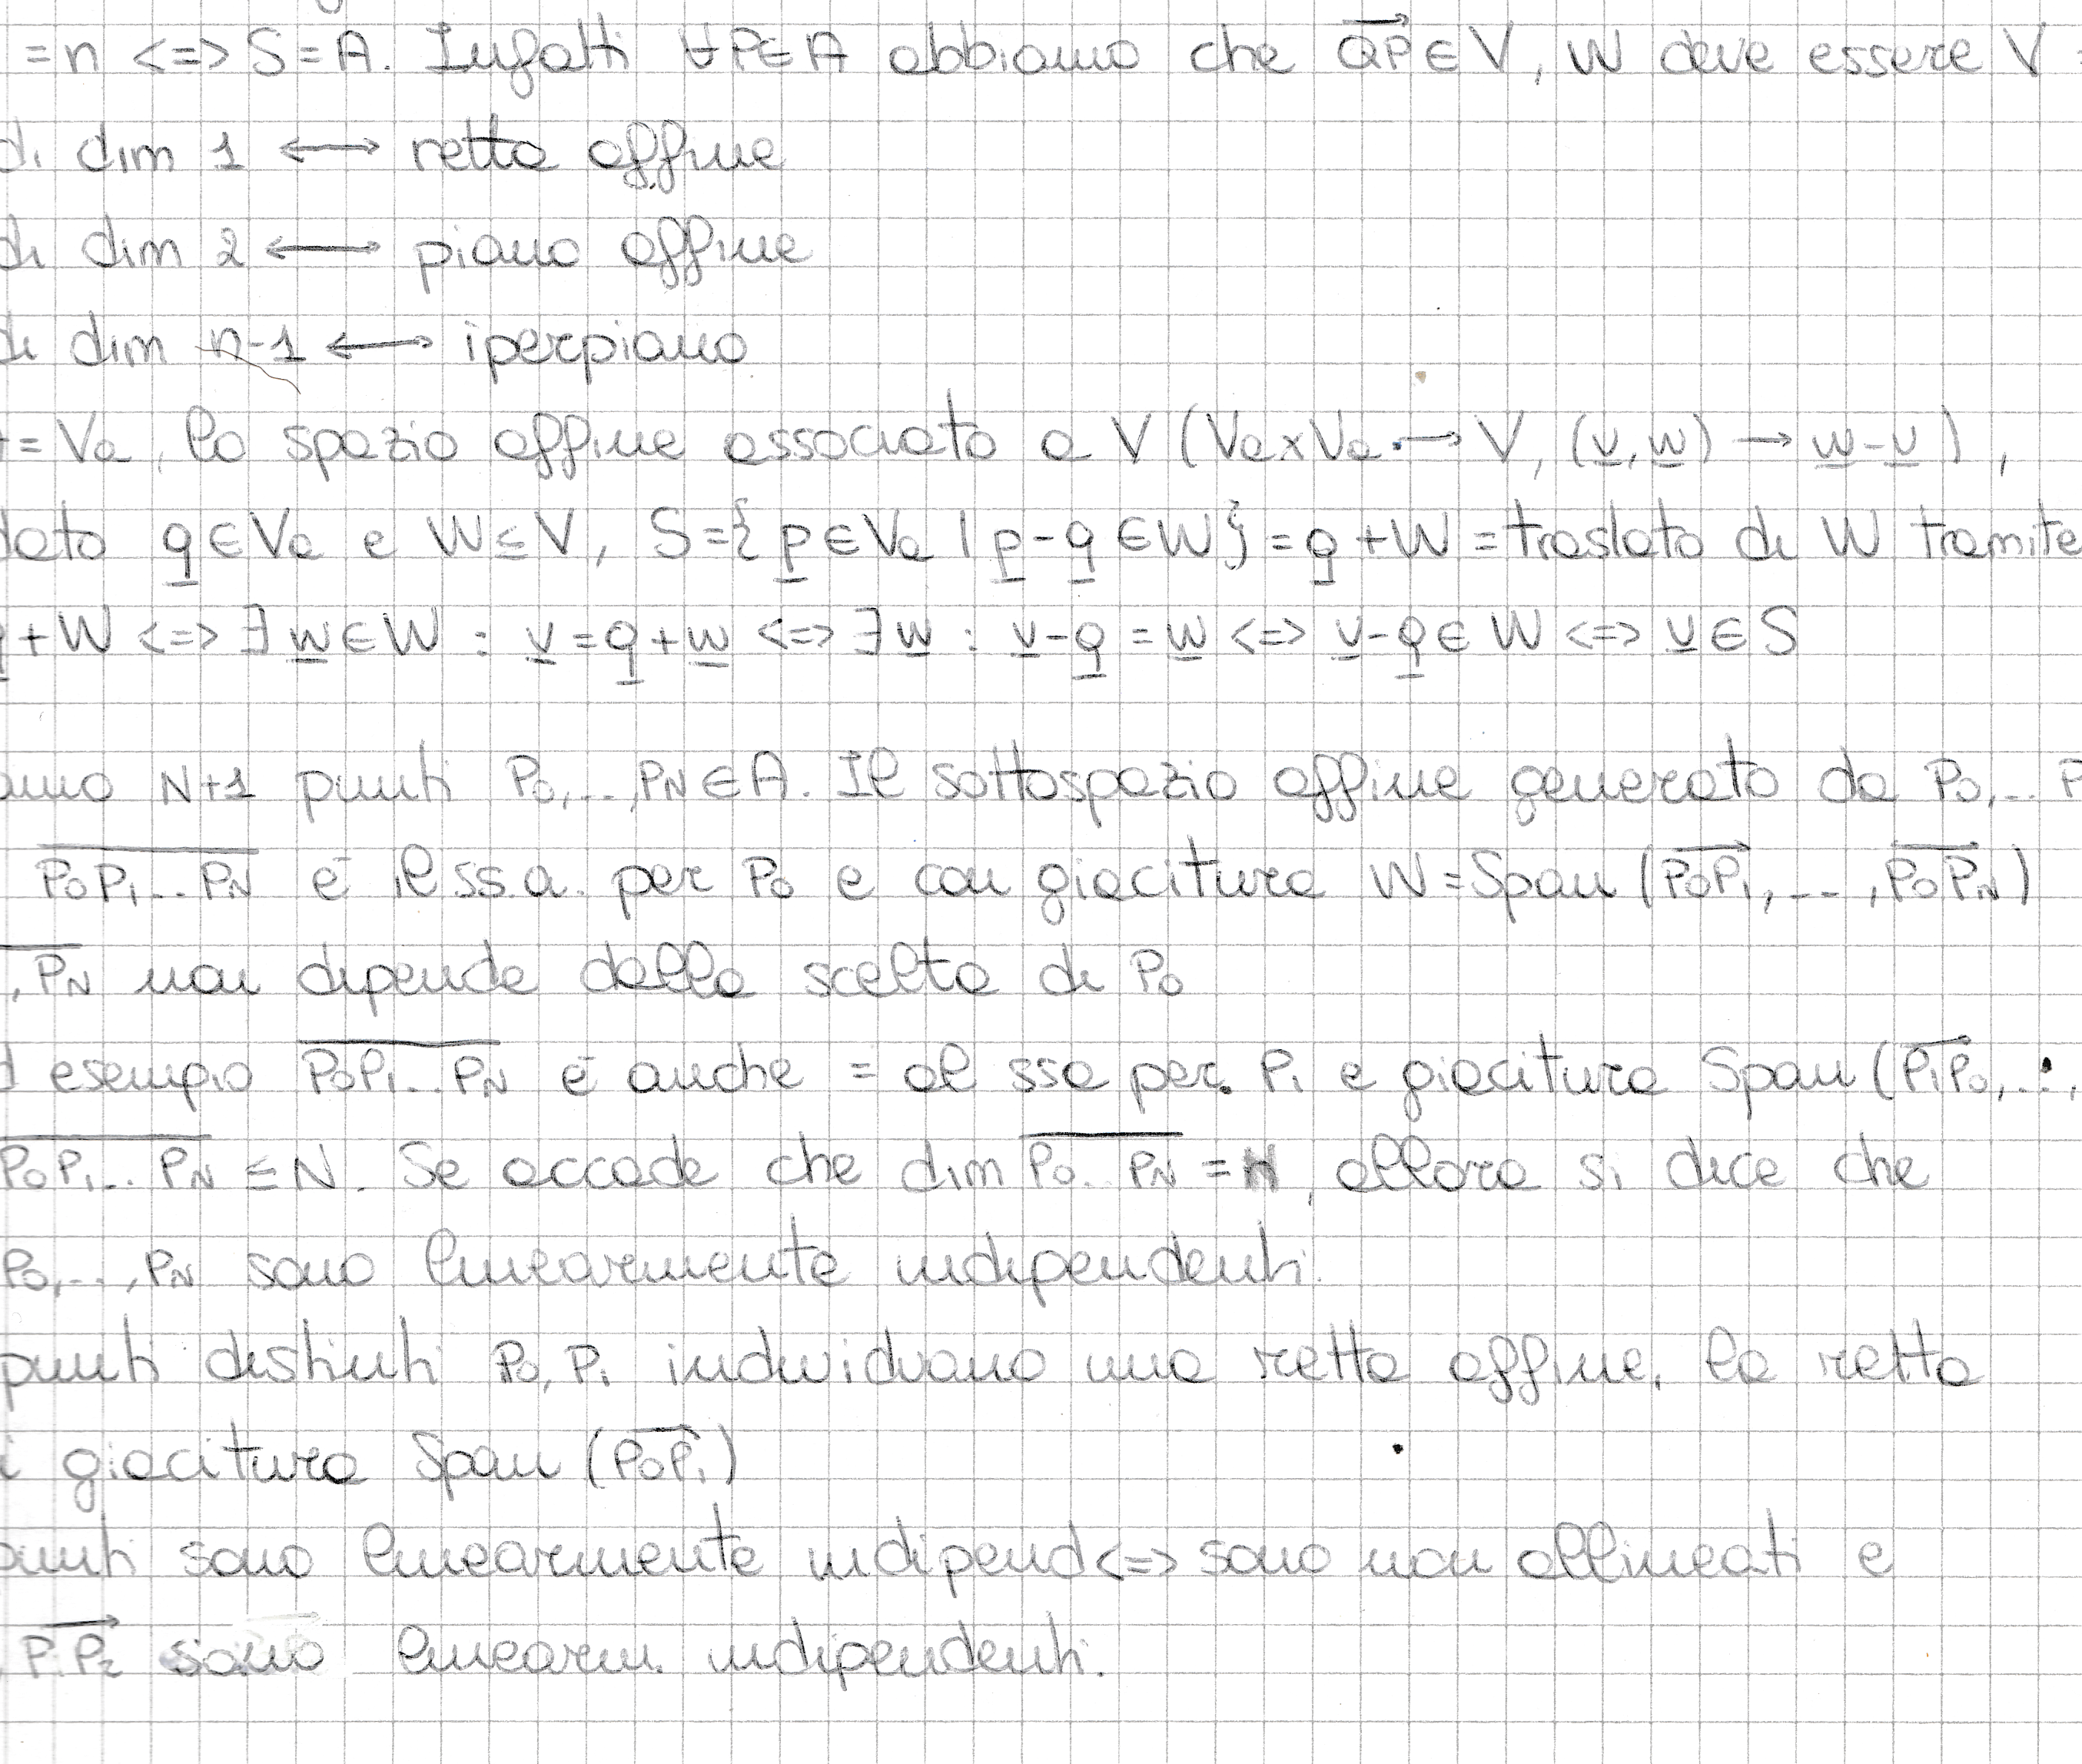 =n <=> S=A. Infatti ∀P∈A abbiamo che \overrightarrow{QP}∈V, W deve essere V =
di dim 1 ⟷ retta affine
di dim 2 ⟷ piano affine
di dim n-1 ⟷ iperpiano
=Va, lo spazio affine associato a V (Va×Va → V, (v,w) → w-v),
dato q∈Va e W≤V, S={p∈Va | p-q∈W}=q+W=traslato di W tramite
+W <=> ∃w∈W : v=q+w <=> ∃w : v-q=w <=> v-q∈W <=> v∈S
amo N+1 punti P0,..,PN∈A. Il sottospazio affine generato da P0,.. P
\overline{P0P1..PN} è il s.s.a. per P0 e con giacitura W=Span(\overrightarrow{P0P1},..,\overrightarrow{P0PN})
,PN non dipende dalla scelta di P0
d esempio \overline{P0P1..PN} è anche = al ssa per P1 e giacitura Span(\overrightarrow{P1P0},..,
\overline{P0P1..PN} ≤N. Se accade che dim \overline{P0..PN} =N, allora si dice che
P0,..,PN sono linearmente indipendenti.
punti distinti P0,P1 individuano una retta affine, la retta
i giacitura Span(\overrightarrow{P0P1})
punti sono linearmente indipend <=> sono non allineati e
\overrightarrow{P1P2} siano linearm. indipendenti.